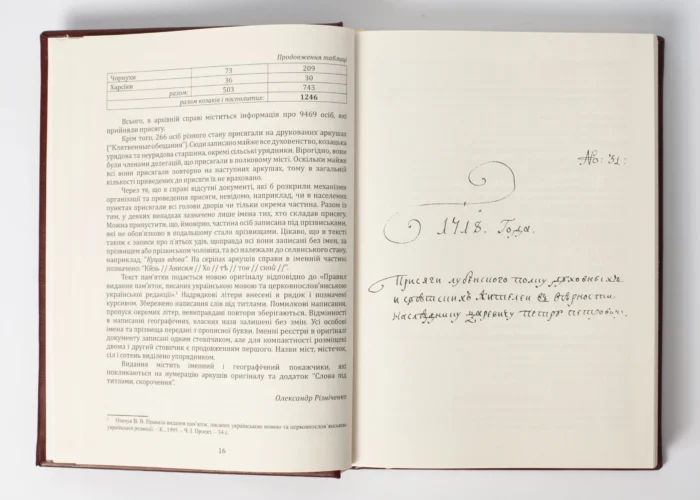 Продовження таблиці
Чорнухи 73 209
Харсіки 36 30
разом: 503 743
разом козаків і посполитих: 1246
Всього, в архівній справі міститься інформація про 9469 осіб, які
прийняли присягу.
Крім того, 266 осіб різного стану присягали на друкованих аркушах
("Клятвенное обещание"). Сюди записано майже все духовенство, козацька
урядова та неурядова старшина, окремі сільські урядники. Вірогідно, вони
були членами делегацій, що присягали в полковому місті. Оскільки майже
всі вони присягали повторно на наступних аркушах, тому в загальній
кількості приведених до присяги їх не враховано.
Через те, що в справі відсутні документи, які б розкрили механізми
організації та проведення присяги, невідомо, наприклад, чи в населених
пунктах присягали всі голови дворів чи тільки окрема частина. Разом із
тим, у деяких випадках зазначено лише імена тих, хто складав присягу.
Можна припустити, що, ймовірно, частина осіб записана під прізвиськами,
які не обов'язково в подальшому стали прізвищами. Цікаво, що в тексті
також є записи про п'ятьох удів, щоправда всі вони записані без імен, за
прізвищем або прізвиськом чоловіка, та всі належали до селянського стану,
наприклад, "Куцая вдова". На скріпах аркушів справи в іменній частині
позначено:
Текст пам'ятки подається мовою оригіналу відповідно до «Правил
видання пам'яток, писаних українською мовою та церковнослов'янською
української редакції».¹ Надрядкові літери внесені в рядок і позначені
курсивом. Збережено написання слов під титлами. Помилкові написання,
пропуск окремих літер, невиправдані повтори зберігаються. Відмінності
в написанні географічних, власних назв залишені без змін. Усі особові
імена та прізвища передані з прописної букви. Іменні реєстри в оригіналі
документу записані одним стовпчиком, але для компактності розміщені
двома і другий стовпчик є продовженням першого. Назви міст, містечок,
сіл і сотень виділено упорядником.
Видання містить іменний і географічний покажчики, які
покликаються на нумерацію аркушів оригіналу та додаток "Слова під
титлами, скорочення".
Олександр Різніченко
¹ Німчук В. В. Правила видання пам'яток, писаних українською мовою та церковнослов'янською
української редакції. – К., 1995. – Ч. І. Проект. – 34 с.
16
№: 31:
1718. Года.
Присяги лубенского полку духовныхъ
и свѣтскихъ жителей въ вѣрности
наслѣднику царевичу Петру Петровичу.